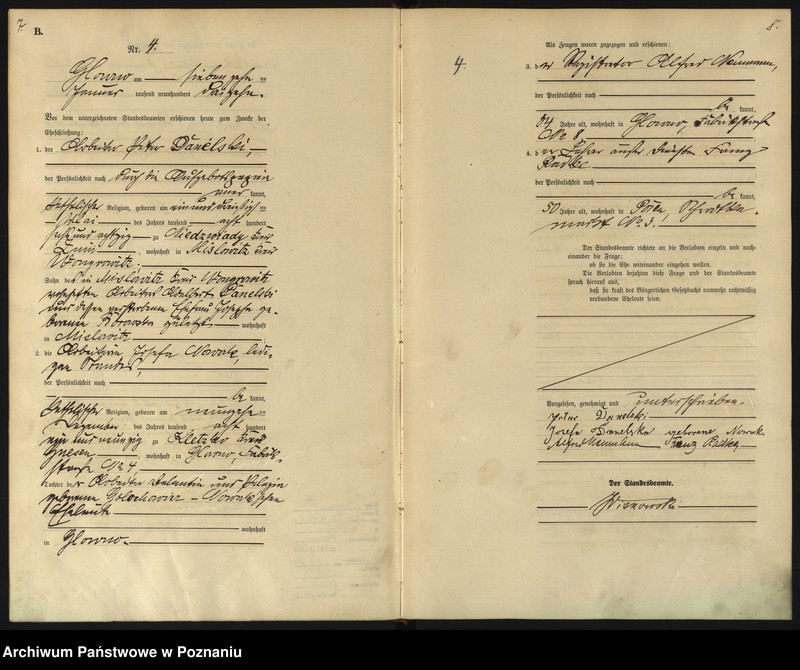 7.
B.
Nr. 4.
Glowno am siebenzehn ten
Januar tausend neunhundert dreizehn.
Vor dem unterzeichneten Standesbeamten erschienen heute zum Zwecke der
Eheschließung:
1. der Arbeiter Peter Danelski,
der Persönlichkeit nach durch die Aufgebots
kannt,
katholischer Religion, geboren am einunddreißig
Mai des Jahres tausend acht hundert
sechsundachtzig zu Kreis
Znin, wohnhaft in Mislowitz Kreis
Wongrowitz.
Sohn des in Mislowitz Kreis Wongrowitz
Arbeiters Adalbert Danelski
und dessen verstorbenen Ehefrau Josepha ge-
borenen zuletzt wohnhaft
in Mislowitz.
2. die Arbeiterin Josefa Nowak, ledi-
gen Standes,
der Persönlichkeit nach
be kannt,
katholischer Religion, geboren am neunzehn
Dezember des Jahres tausend acht hundert
ein und neunzig zu Kletzko Kreis
Gnesen, wohnhaft in Glowno, Fabrik-
straße No 4.
Tochter der Arbeiter Valentin und Pelagia
geborene Nowakschen
Eheleute
wohnhaft
in Glowno.
8.
4.
Als Zeugen waren zugezogen und erschienen:
3. der Registrator Alfred Neumann,
der Persönlichkeit nach
be kannt,
34 Jahre alt, wohnhaft in Glowno, Fabrikstraße
No 8,
4. der Franz
Radke
der Persönlichkeit nach
be kannt,
50 Jahre alt, wohnhaft in Posen,
markt No 3.
Der Standesbeamte richtete an die Verlobten einzeln und nach-
einander die Frage:
ob sie die Ehe miteinander eingehen wollen.
Die Verlobten bejahten diese Frage und der Standesbeamte
sprach hierauf aus,
daß sie kraft des Bürgerlichen Gesetzbuchs nunmehr rechtmäßig
verbundene Eheleute seien.
Vorgelesen, genehmigt und unterschrieben.
Peter Danelski
Josefa Danelska geborene Nowak
Alfred Neumann Franz Radke
Der Standesbeamte.
Wisnowski
Archiwum Państwowe w Poznaniu